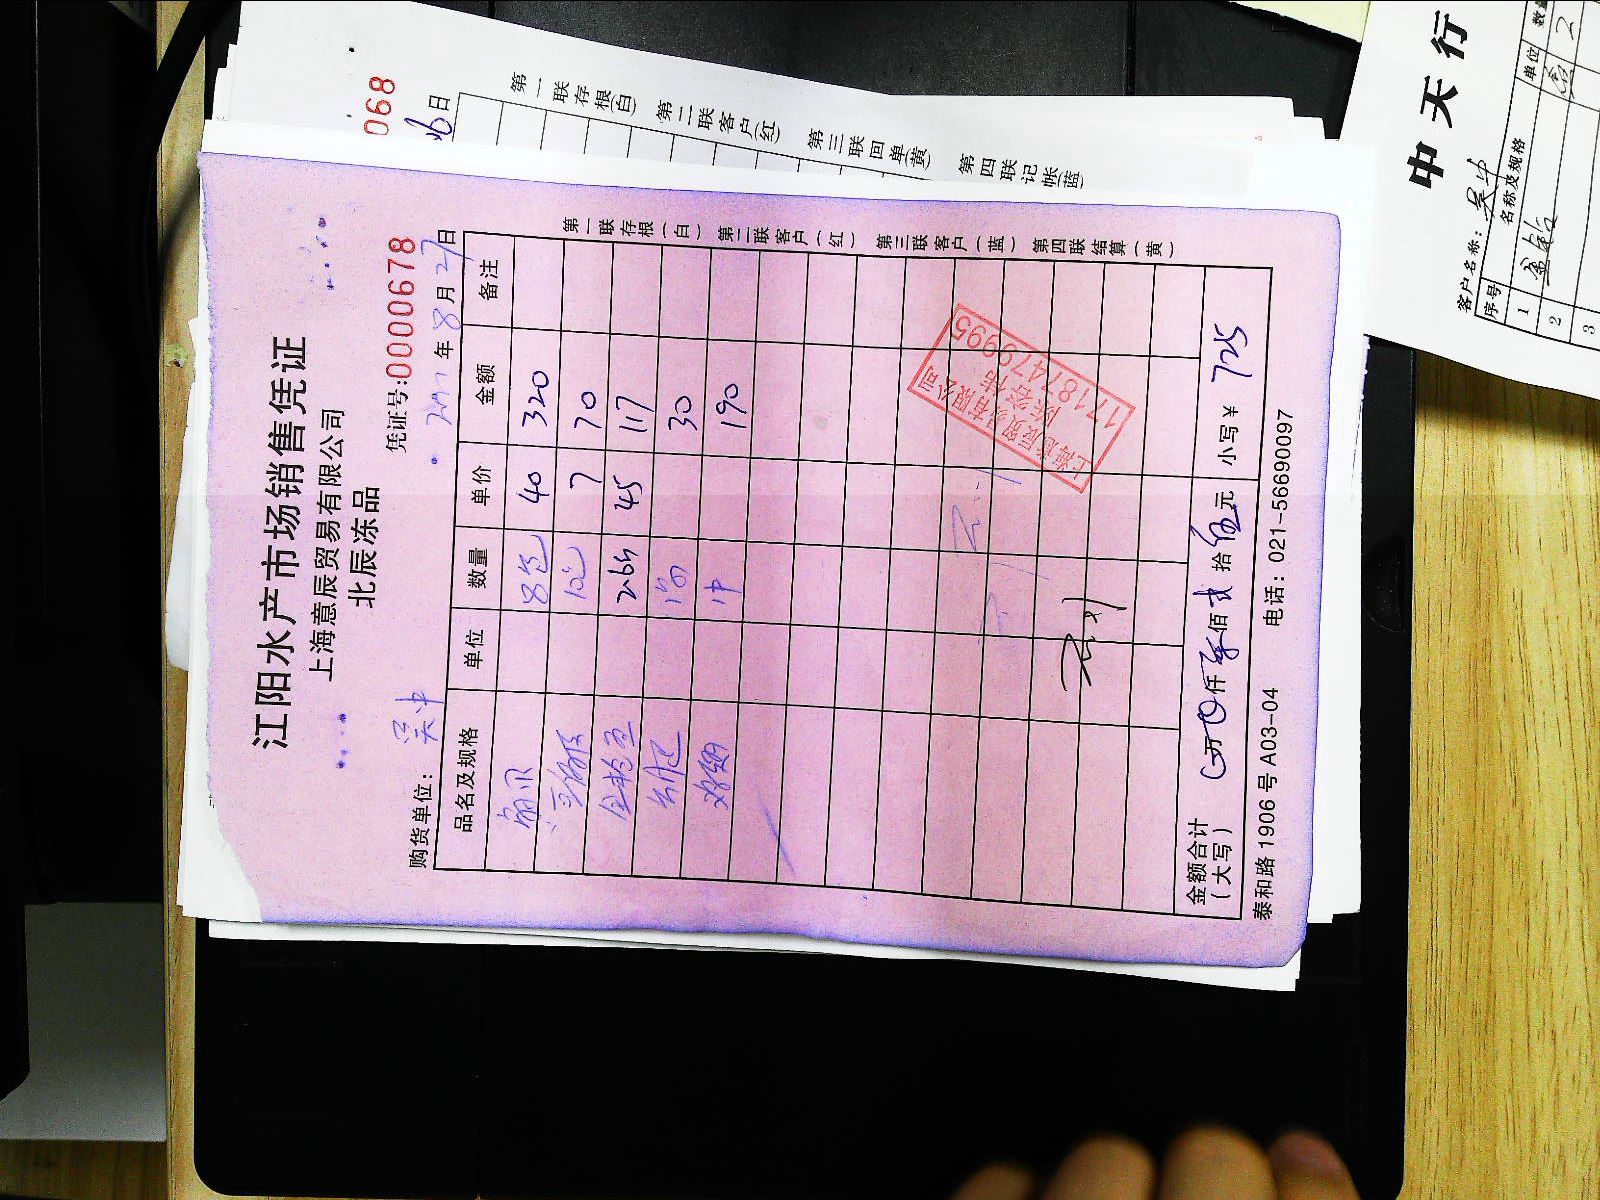 江阳水产市场销售凭证
上海意辰贸易有限公司
北辰冻品
凭证号:0000678
购货单位: 吴中 年 8 月 27 日
品名及规格 单位 数量 单价 金额 备注
8包 40 320
10包 7 70
45 117
30
1件 190
金额合计 万 仟 柒 佰 贰 拾 伍 元 小写¥ 725
(大写)
泰和路 1906 号 A03-04 电话: 021-56690097
第一联存根(白) 第二联客户(红) 第三联客户(蓝) 第四联结算(黄)
上海意辰贸易有限公司
17187479995
068
日
第一联存根(白) 第二联客户(红) 第三联回单(黄) 第四联记帐(蓝)
中天行
客户名称: 吴中
序号 名称及规格 单位 数量
1 盒 2
2
3